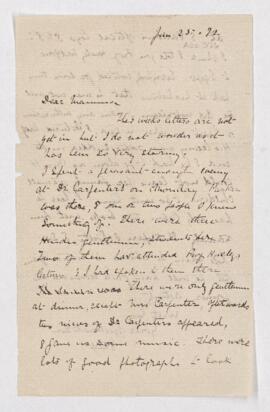 Jan 25. 74
Dear Mamma
This weeks letters are not
got in but I do not wonder as it
has been so very stormy.
I spent a pleasant enough evening
at Dr Carpenter's on Monday.
was there, & one or two people I knew
something of. There were three
Hindu gentlemen, students here,
two of them had attended Prof.
lectures, & I had spoken to them there
There were only gentlemen
at dinner, except Mrs Carpenter. Afterwards
two nieces of Dr Carpenters appeared,
& gave us some music. There were
lots of good photographs to look